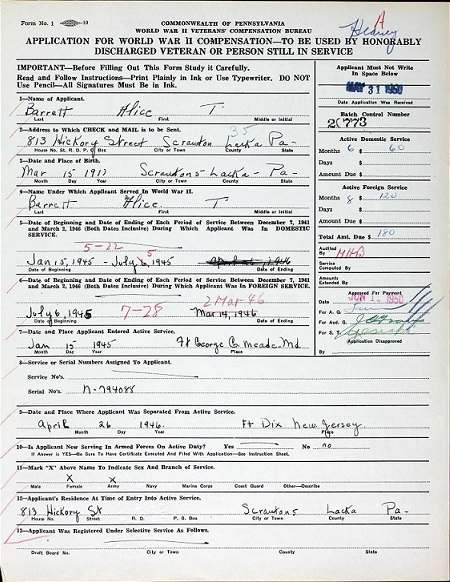 Form No. 1
COMMONWEALTH OF PENNSYLVANIA
WORLD WAR II VETERANS' COMPENSATION BUREAU
A
APPLICATION FOR WORLD WAR II COMPENSATION—TO BE USED BY HONORABLY
DISCHARGED VETERAN OR PERSON STILL IN SERVICE
IMPORTANT—Before Filling Out This Form Study it Carefully.
Read and Follow Instructions—Print Plainly in Ink or Use Typewriter. DO NOT
Use Pencil—All Signatures Must be in Ink.
Applicant Must Not Write
In Space Below
MAY 31 1950
Date Application Was Received
Batch Control Number
20773
1—Name of Applicant.
Barrett Alice T.
Last First Middle or Initial
2—Address to Which CHECK and MAIL is to be Sent.
35
813 Hickory Street Scranton Lacka Pa-
House No. St. R. D. P. O. Box City or Town County State
3—Date and Place of Birth.
Mar 15 Scrantons Lacka- Pa-
Month Day Year City or Town County State
4—Name Under Which Applicant Served In World War II.
Barrett Alice T
Last First Middle or Initial
5—Date of Beginning and Date of Ending of Each Period of Service Between December 7, 1941
and March 2, 1946 (Both Dates Inclusive) During Which Applicant Was In DOMESTIC
SERVICE.
5-22
Jan 15, 1945 - July 5, 1945
Date of Beginning Date of Ending
6—Date of Beginning and Date of Ending of Each Period of Service Between December 7, 1941
and March 2, 1946 (Both Dates Inclusive) During Which Applicant Was In FOREIGN SERVICE.
2 Mar 46
July 6, 1945 7-28 Mar 19, 1946
Date of Beginning Date of Ending
Active Domestic Service
Months 6 $ 60
Days $
Amount Due $
Active Foreign Service
Months 8 $ 120
Days $
Amount Due $
Total Amt. Due $ 180
Audited By
Service Computed By
Amount Extended By
Approved For Payment
Date JUN 1 1950
For A. G.
For Aud. G.
For S. T.
Application Disapproved
By
7—Date and Place Applicant Entered Active Service.
Jan 15 1945 Ft George G. Meade, Md.
Month Day Year Place
8—Service or Serial Numbers Assigned To Applicant.
Service No's.
Serial No's. N-794088
9—Date and Place Where Applicant Was Separated From Active Service.
April 26 1946. Ft Dix New Jersey.
Month Day Year Place
10—Is Applicant Now Serving In Armed Forces On Active Duty? Yes No no
If Answer is YES—Be Sure To Have Certificate Executed And Filed With Application—See Instruction Sheet.
11—Mark "X" Above Name To Indicate Sex and Branch of Service.
X X
Male Female Army Navy Marine Corps Coast Guard Other—Describe
12—Applicant's Residence At Time of Entry Into Active Service.
813 Hickory St Scrantons Lacka Pa-
House No. Street R. D. P. O. Box City or Town County State
13—Applicant Was Registered Under Selective Service As Follows.
Draft Board No. City or Town County State